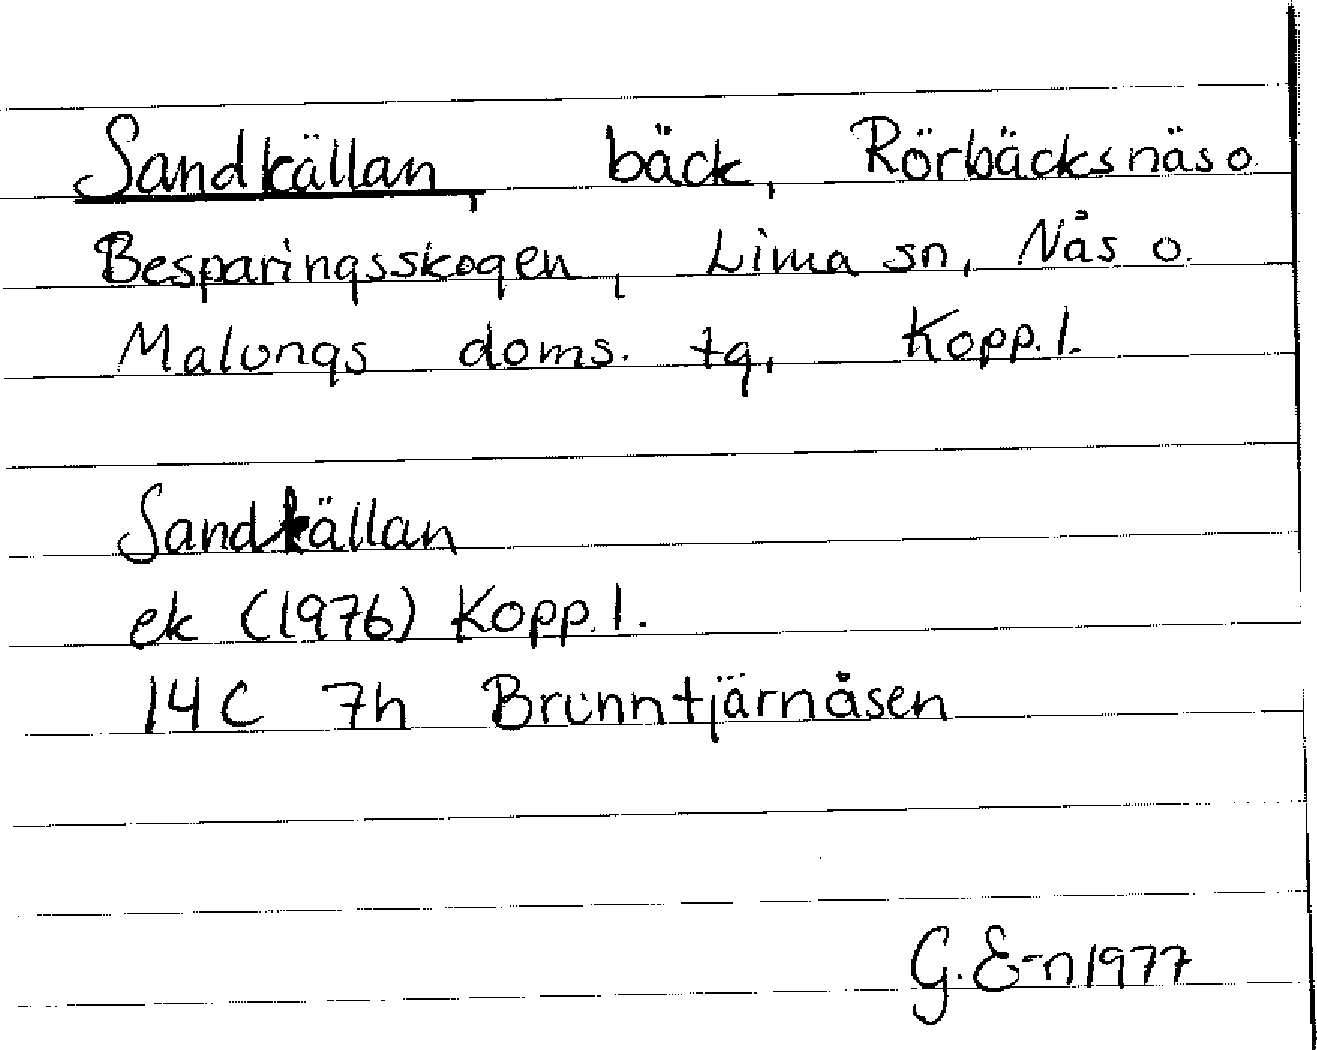 Sandkällan, bäck, Rörbäcksnäs o.
Besparingsskogen, Lima sn, Nås o.
Malungs doms. tg, Kopp. l.
Sandkällan
ek (1976) Kopp. l.
14C 7h Brunntjärnåsen
G. E-n 1977